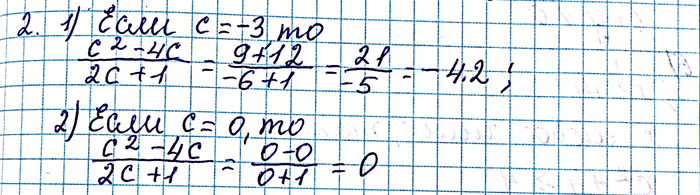 2. 1) Если c = -3, то
(c² - 4c)/(2c + 1) = (9 + 12)/(-6 + 1) = 21/-5 = -4.2 ;
2) Если c = 0, то
(c² - 4c)/(2c + 1) = (0 - 0)/(0 + 1) = 0